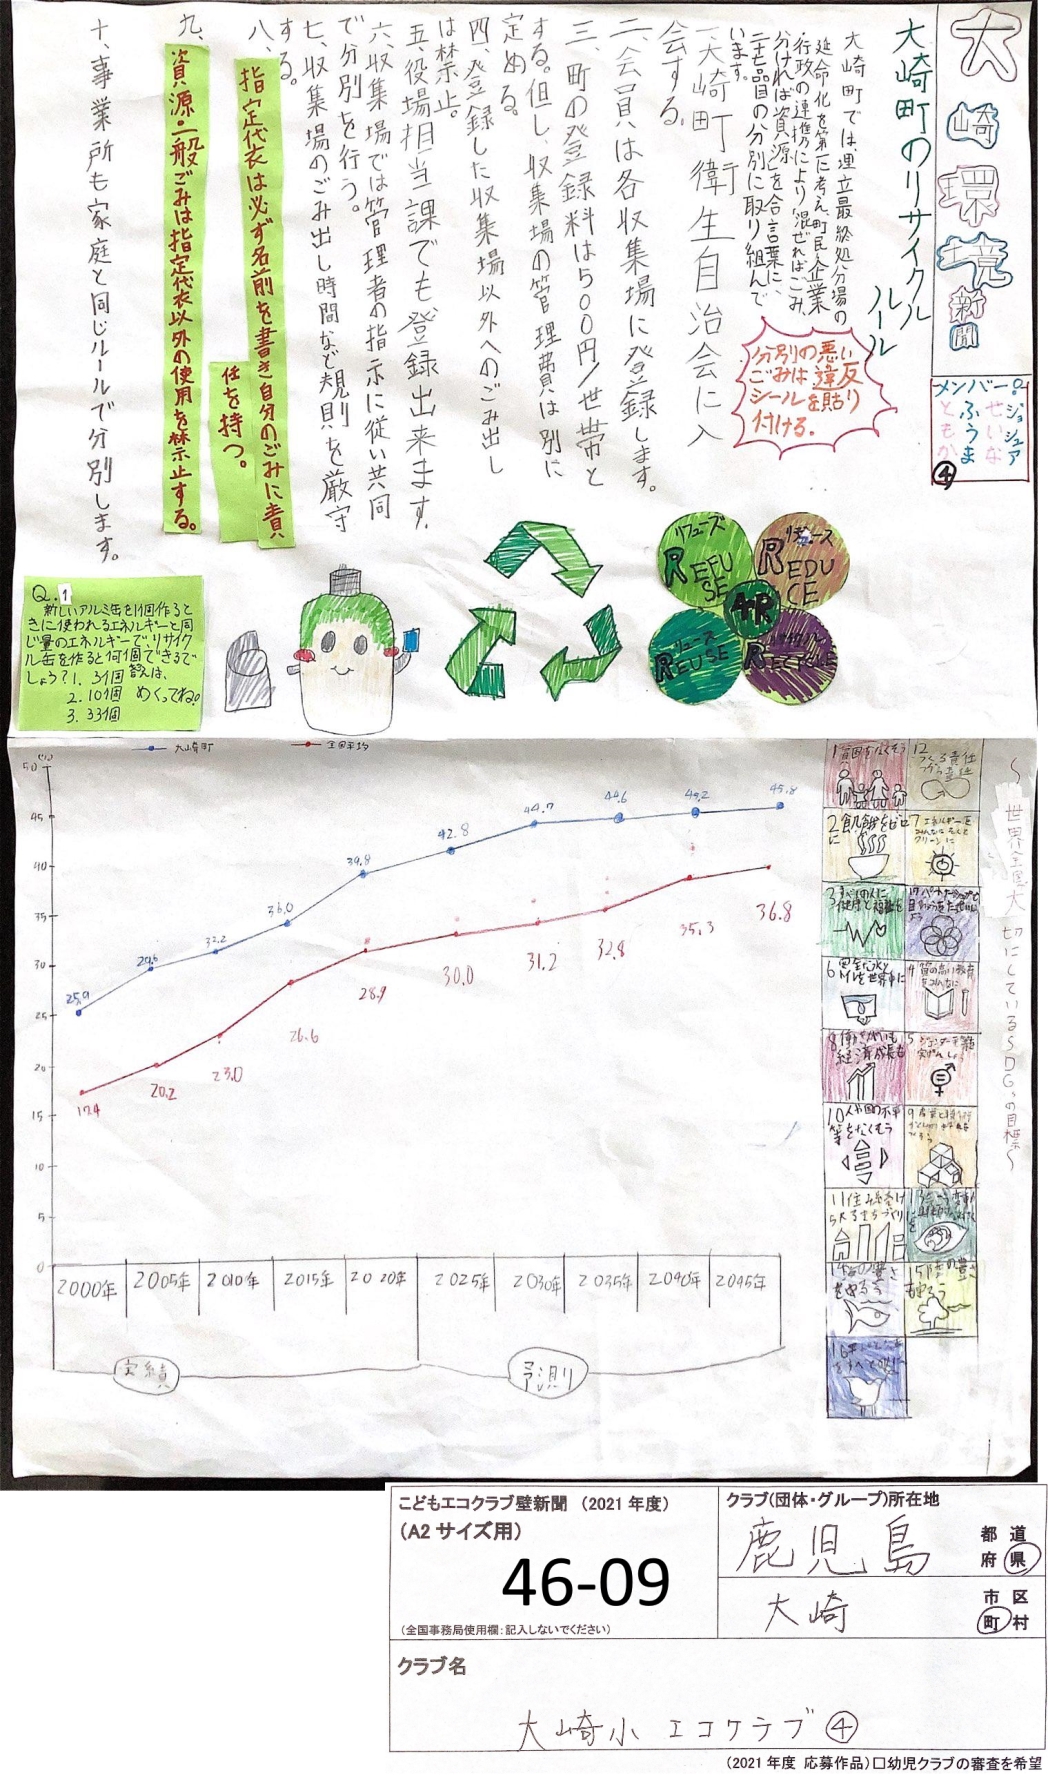 大崎環境新聞
メンバー。ジョシュア
せいな
ふうま
ともか
④
大崎町のリサイクル
ルール
大崎町では、埋立最終処分場の
延命化を第一に考え、町民、企業
・行政の連携により「混ぜればごみ、
分ければ資源」を合言葉に、
二十七品目の分別に取り組んで
います。
分別の悪い
ごみは違反
シールを貼り
付ける。
一、大崎町衛生自治会に入
会する。
二、会員は各収集場に登録します。
三、町の登録料は500円/世帯と
する。但し、収集場の管理費は別に
定める。
四、登録した収集場以外へのごみ出し
は禁止。
五、役場担当課でも登録出来ます。
六、収集場では管理者の指示に従い共同
で分別を行う。
七、収集場のごみ出し時間など規則を厳守
する。
八、指定代衣は必ず名前を書き自分のごみに責
任を持つ。
九、資源・一般ごみは指定代衣以外の使用を禁止する。
十、事業所も家庭と同じルールで分別します。
リフューズ
REFUSE
リデュース
REDUCE
4R
リユース
REUSE
リサイクル
RECYCLE
Q.1
新しいアルミ缶を1個作ると
きに使われるエネルギーと同
じ量のエネルギーで、リサイク
ル缶を作ると何個できるで
しょう? 1. 3個 答えは、
2. 10個 めくってね!
3. 33個
大崎町
全国平均
50 (%)
45
40
35
30
25
20
15
10
5
0
25.9
29.6
32.2
36.0
39.8
42.8
44.7
44.6
45.8
17.4
20.2
23.0
26.6
28.9
30.0
31.2
32.8
35.3
36.8
2000年 2005年 2010年 2015年 2020年 2025年 2030年 2035年 2040年 2045年
実績
予測
〜世界全国大切にしているSDGsの目標〜
1 貧困をなくそう
12 つくる責任
つかう責任
2 飢餓をゼロ
に
7 エネルギーを
みんなにそして
クリーンに
3 すべての人に
健康と福祉を
6 安全な水と
トイレを世界中に
4 質の高い教育
をみんなに
8 働きがいも
経済成長も
10 人や国の不平
等をなくそう
11 住み続け
られるまちづくり
を
こどもエコクラブ壁新聞 (2021年度)
(A2サイズ用)
46-09
(全国事務局使用欄:記入しないでください)
クラブ(団体・グループ)所在地
鹿児島
都 道
府 県
大崎
市 区
町 村
クラブ名
大崎小 エコクラブ④
(2021年度 応募作品)□幼児クラブの審査を希望